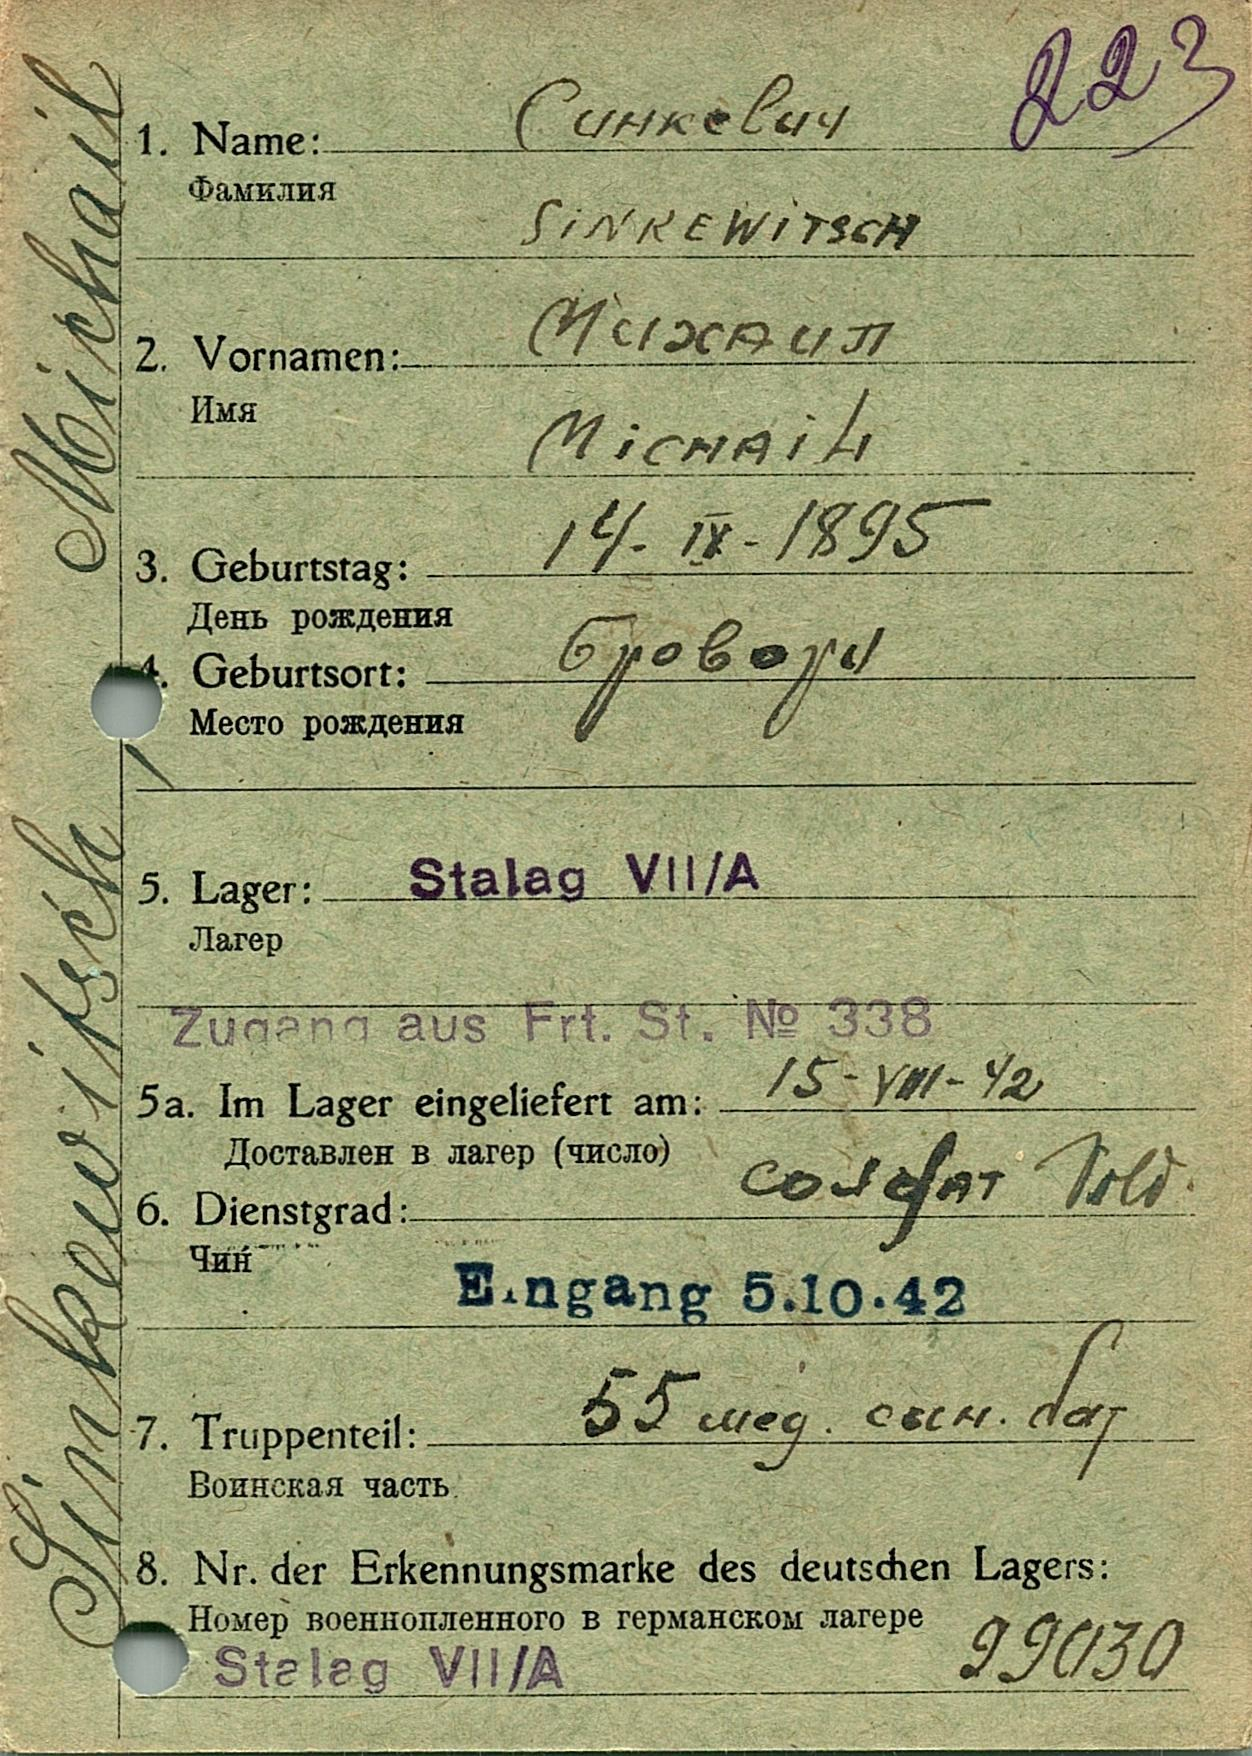 223
1. Name: Синкевич
Фамилия
SINKEWITSCH
2. Vornamen: Михаил
Имя
MICHAIL
3. Geburtstag: 14-IX-1895
День рождения
4. Geburtsort: Бровори
Место рождения
5. Lager: Stalag VII/A
Лагер
Zugang aus Frt. St. № 338
5a. Im Lager eingeliefert am: 15-VIII-42
Доставлен в лагер (число)
6. Dienstgrad: солдат Sold.
Чин
Eingang 5.10.42
7. Truppenteil: 55 мед. сан. бат
Воинская часть
8. Nr. der Erkennungsmarke des deutschen Lagers:
Номер военнопленного в германском лагере
Stalag VII/A 99030
Sinkewitsch, Michail